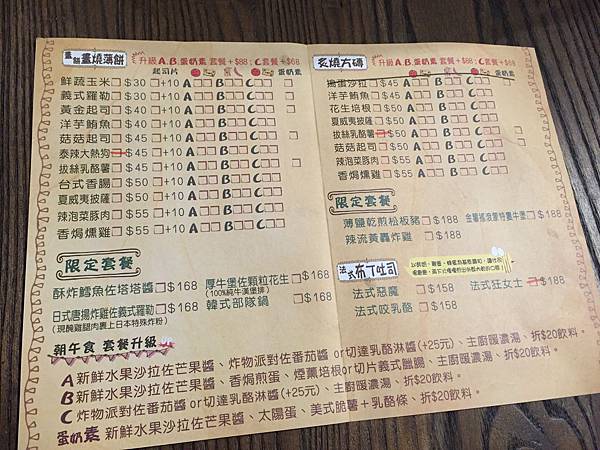 畫燒薄餅 升級A.B.蛋奶素 套餐+$88；C套餐+$68
起司片 蛋奶素
鮮蔬玉米□$30 □+10 A□□ B□□ C□□ □
義式羅勒□$30 □+10 A□□ B□□ C□□ □
黃金起司□$40 □+10 A□□ B□□ C□□ □
洋芋鮪魚□$40 □+10 A□□ B□□ C□□
菇菇起司□$45 □+10 A□□ B□□ C□□ □
泰辣大熱狗□$45 □+10 A□□ B□□ C□□
拔絲乳酪薯□$45 □+10 A□□ B□□ C□□ □
台式香腸□$50 □+10 A□□ B□□ C□□
夏威夷披薩□$50 □+10 A□□ B□□ C□□
辣泡菜豚肉□$55 □+10 A□□ B□□ C□□
香焗燻雞□$55 □+10 A□□ B□□ C□□
限定套餐
酥炸鱈魚佐塔塔醬□$168 厚牛堡佐顆粒花生□$168
(100%純牛漢堡排)
日式唐揚炸雞佐義式羅勒□$168 韓式部隊鍋□$168
(現醃雞腿肉裹上日本特殊炸粉)
炙燒方磚 升級A.B.蛋奶素 套餐+$88；C套餐+$68
蛋奶素
搗蛋沙拉□$45 A□□ B□□ C□□ □
洋芋鮪魚□$45 A□□ B□□ C□□
花生培根□$50 A□□ B□□ C□□
夏威夷披薩□$50 A□□ B□□ C□□
拔絲乳酪薯□$50 A□□ B□□ C□□ □
菇菇起司□$50 A□□ B□□ C□□ □
辣泡菜豚肉□$55 A□□ B□□ C□□
香焗燻雞□$55 A□□ B□□ C□□
限定套餐
薄鹽乾煎松板豬□$188 □$188
辣流黃轟炸雞□$188
法式布丁吐司
法式惡魔□$158 法式狂女士□$188
法式咬乳酪□$158
朝午食 套餐升級
A 新鮮水果沙拉佐芒果醬、炸物派對佐番茄醬 or切達乳酪淋醬(+25元)、主廚暖濃湯、折$20飲料。
B 新鮮水果沙拉佐芒果醬、香焗煎蛋、煙薰培根or切片義式臘腸、主廚暖濃湯、折$20飲料。
C 炸物派對佐番茄醬 or切達乳酪淋醬(+25元)、主廚暖濃湯、折$20飲料。
蛋奶素 新鮮水果沙拉佐芒果醬、太陽蛋、美式脆薯+乳酪條、折$20飲料。